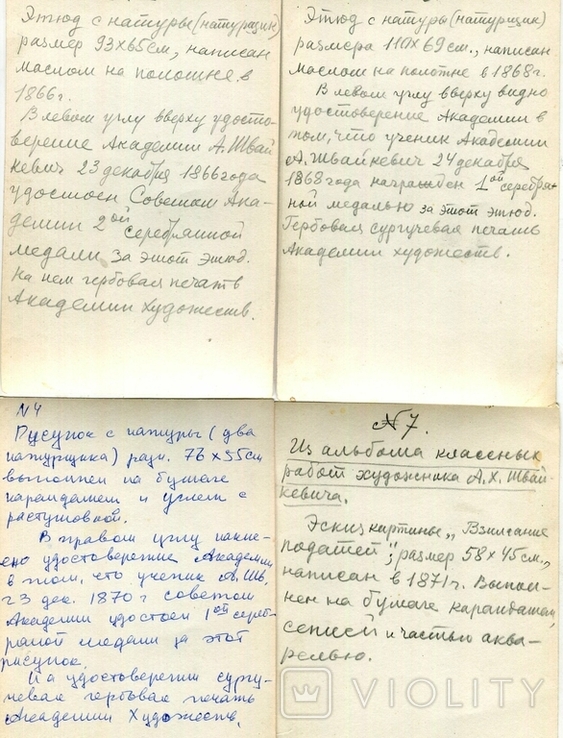 Этюд с натуры (натурщик)
размер 93х65см, написан
маслом на полотне в
1866г.
В левом углу вверху удосто-
верение Академии А.Швай
кевич 23 декабря 1866 года
удостоен Советом Ака-
демии 2ой серебряной
медали за этот этюд.
На нем гербовая печать
Академии Художеств.
Этюд с натуры (натурщик)
размера 110х69 см., написан
маслом на полотне в 1868г.
В левом углу вверху видно
удостоверение Академии в
том, что ученик Академии
А.Швайкевич 24 декабря
1868 года награжден 1ой серебря-
ной медалью за этот этюд.
Гербовая сургучевая печать
Академии художеств.
N4
Рисунок с натуры (два
натурщика) разм. 76х55см
выполнен на бумаге
карандашем и углем с
растушовкой.
В правом углу накле-
ено удостоверение Академии
в том, что ученик А. Шв.
23 дек. 1870 г советом
Академии удостоен 1ой сереб-
ряной медали за этот
рисунок.
На удостоверении сургу-
чевая гербовая печать
Академии Художеств.
N7.
Из альбома классных
работ художника А.Х. Швай-
кевича.
Эскиз картины „Взыскание
податей", размер 58х45см.,
написан в 1871г. Выпол-
нен на бумаге карандашем,
сепией и частью аква-
релью.
VIOLITY